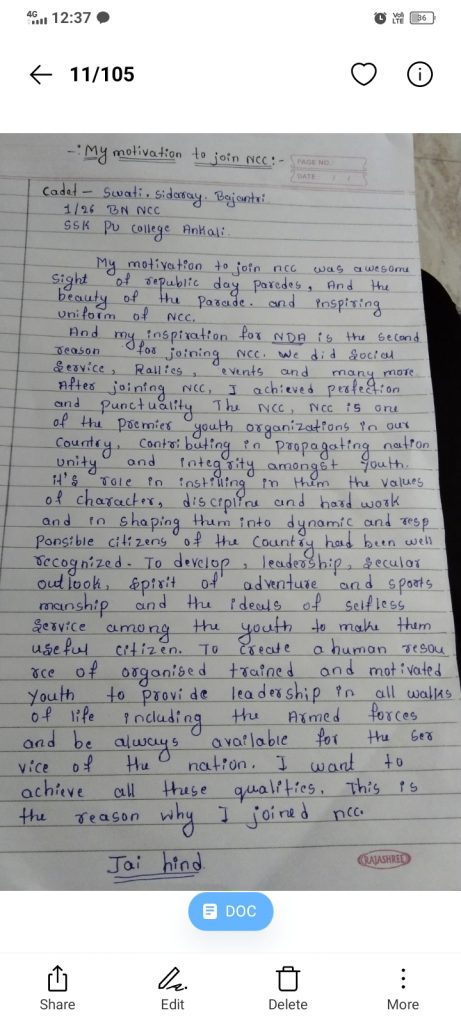 4G 12:37 Vo) LTE 36
11/105
-: My motivation to join NCC :-
PAGE NO.
DATE / /
Cadet - Swati. Sidaray. Bajantri
1/26 BN NCC
SSK PU College Ankali.
My motivation to join ncc was awesome
Sight of republic day paredes, And the
beauty of the Parade. and inspiring
uniform of NCC.
And my inspiration for NDA is the second
reason for joining NCC. We did Social
Service, Rallies, events and many more.
After joining NCC, I achieved perfection
and punctuality The NCC, NCC is one
of the premier youth organizations in our
Country, Contributing in propagating nation
unity and integrity amongst youth.
it's role in instilling in them the values
of character, discipline and hard work
and in shaping them into dynamic and resp
ponsible citizens of the Country had been well
recognized. To develop, leadership, Secular
outlook, Spirit of adventure and sports
manship and the ideals of selfless
Service among the youth to make them
useful citizen. To Create a human resou
rce of organised trained and motivated
Youth to provide leadership in all walks
of life including the Armed forces
and be always available for the ser
vice of the nation. I want to
achieve all these qualities. This is
the reason why I joined ncc.
Jai hind
RAJASHREE
DOC
Share Edit Delete More